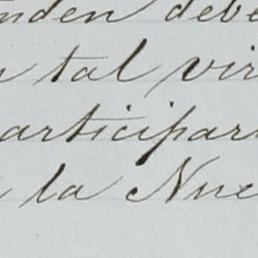 nden debe
tal vir
articipar
la Nue